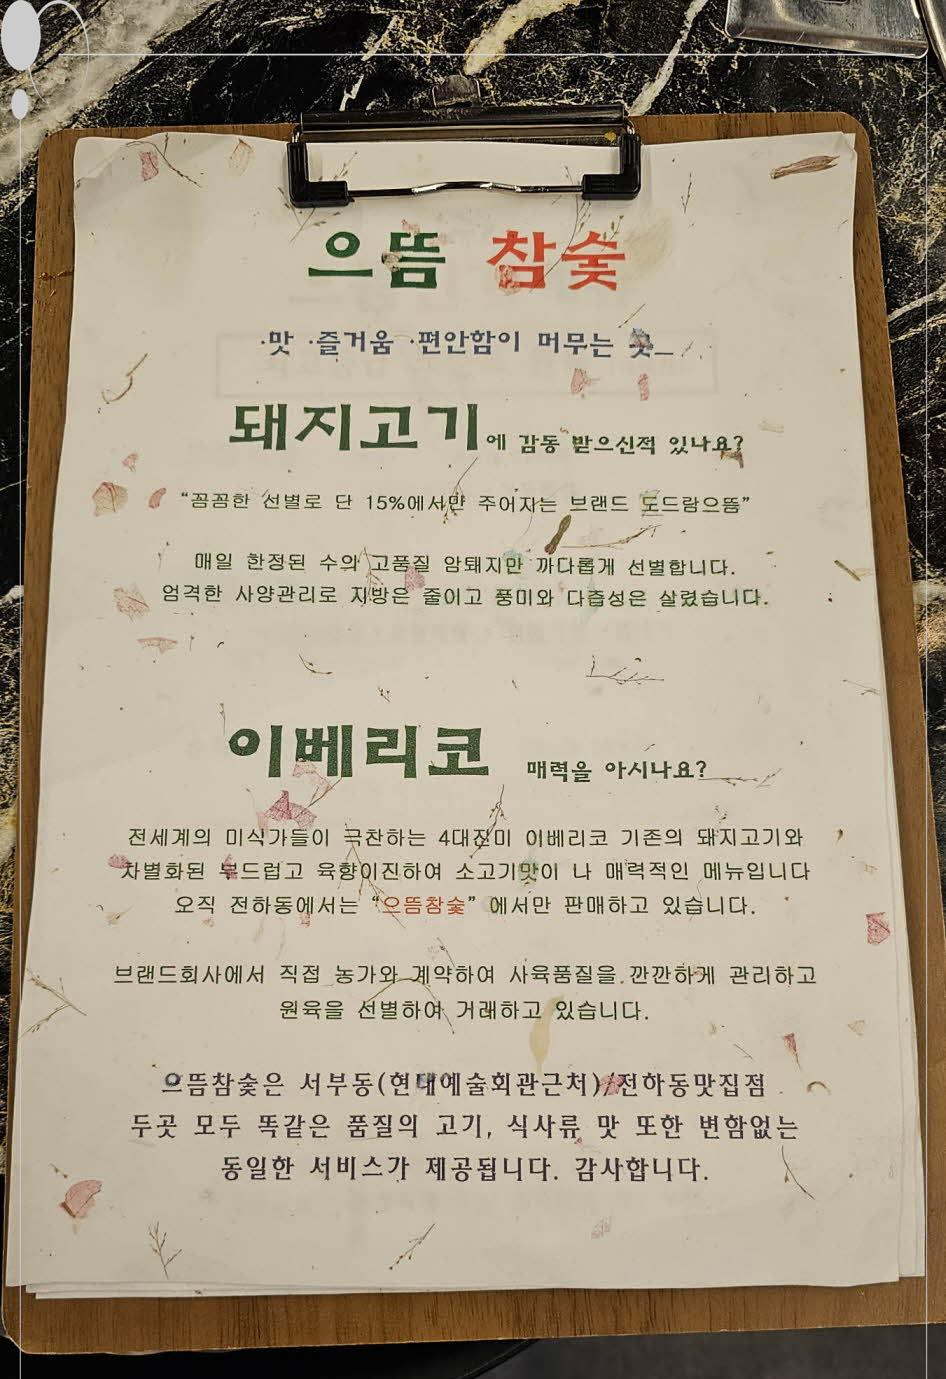 으뜸 참숯
·맛 ·즐거움 ·편안함이 머무는 곳_
돼지고기에 감동 받으신적 있나요?
“꼼꼼한 선별로 단 15%에서만 주어지는 브랜드 도드람으뜸”
매일 한정된 수의 고품질 암퇘지만 까다롭게 선별합니다.
엄격한 사양관리로 지방은 줄이고 풍미와 다즙성은 살렸습니다.
이베리코 매력을 아시나요?
전세계의 미식가들이 극찬하는 4대진미 이베리코 기존의 돼지고기와
차별화된 부드럽고 육향이진하여 소고기맛이 나 매력적인 메뉴입니다
오직 전하동에서는 “으뜸참숯” 에서만 판매하고 있습니다.
브랜드회사에서 직접 농가와 계약하여 사육품질을 깐깐하게 관리하고
원육을 선별하여 거래하고 있습니다.
으뜸참숯은 서부동(현대예술회관근처)/전하동맛집점
두곳 모두 똑같은 품질의 고기, 식사류 맛 또한 변함없는
동일한 서비스가 제공됩니다. 감사합니다.